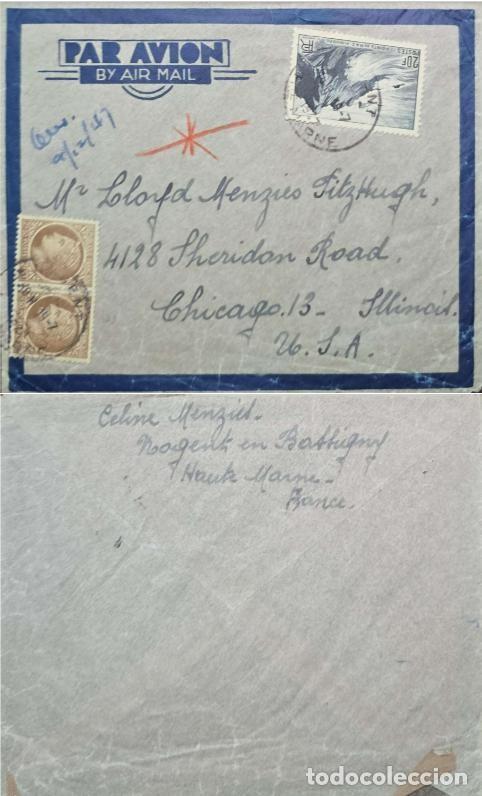 PAR AVION
BY AIR MAIL
20F
POSTES
9/12/47
Mr Lloyd Menzies FitzHugh,
4128 Sheridan Road.
Chicago.13- Illinois.
U.S.A.
Celine Menzies-
Nogent en Bassigny
Haute Marne-
France.
todocoleccion